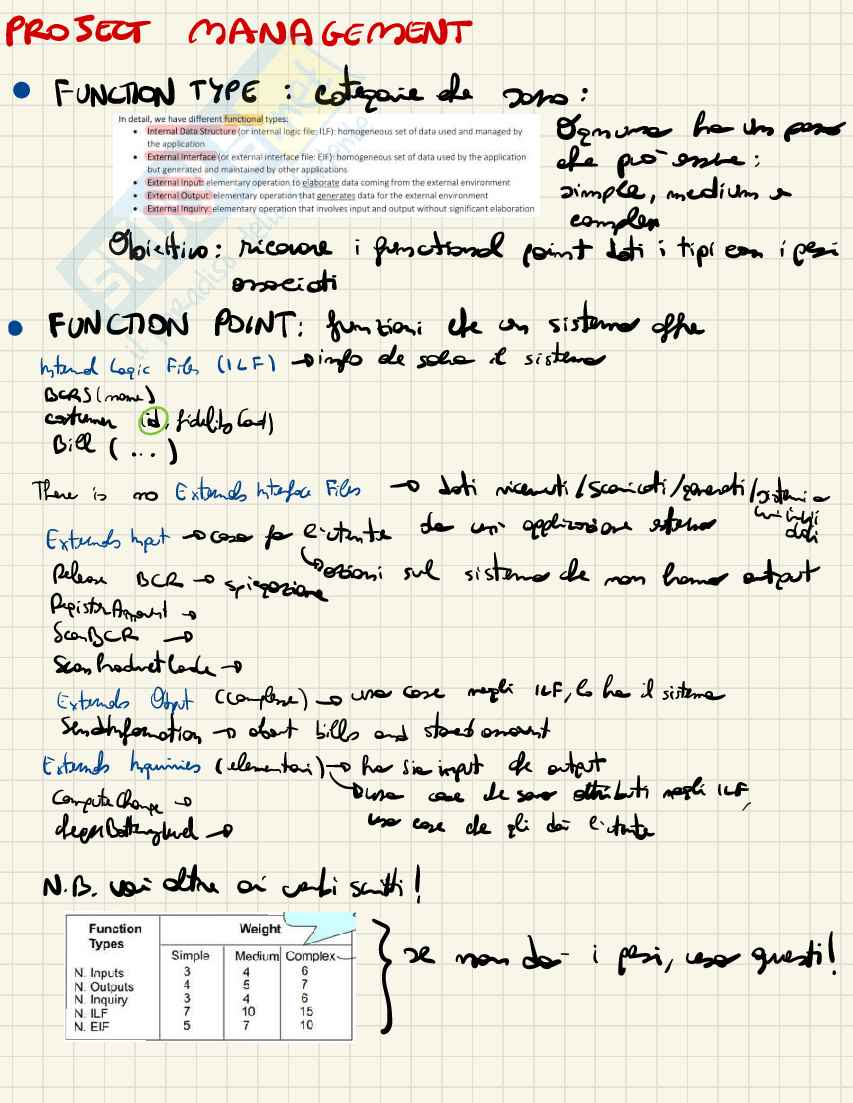 PROJECT MANAGEMENT
FUNCTION TYPE : categorie che sono :
In detail, we have different functional types:
Internal Data Structure (or internal logic file; ILF): homogeneous set of data used and managed by
the application
External Interface (or external interface file; EIF): homogeneous set of data used by the application
but generated and maintained by other applications
External Input: elementary operation to elaborate data coming from the external environment
External Output: elementary operation that generates data for the external environment
External Inquiry: elementary operation that involves input and output without significant elaboration
Ognuna ha un peso
che può essere :
simple, medium e
complex
Obiettivo : ricavare i functional point dati i tipi con i pesi
associati
FUNCTION POINT: funzioni che un sistema offre
Internal Logic Files (ILF) → info che salva il sistema
BCRS (name)
costumer (id, fidelity Card)
Bill (...)
There is no Externals Interface Files → dati ricevuti / scaricati / generati /
Externals Input → cosa fa l'utente da un'applicazione esterna
azioni sul sistema che non hanno output
Release BCR → spiegazione
Register Amount →
Scan BCR →
Scan Product Code →
Externals Output (complesse) → usa cose negli ILF, lo fa il sistema
Send Information → about bills and stored amount
Externals Inquiries (elementari) → ha sia input che output
usa cose che sono attributi negli ILF,
Compute Change →
usa cose che gli dà l'utente
N.B. vai oltre ai verbi scritti!
Function Types Weight
Simple Medium Complex
N. Inputs 3 4 6
N. Outputs 4 5 7
N. Inquiry 3 4 6
N. ILF 7 10 15
N. EIF 5 7 10
se non dà i pesi, usa questi!